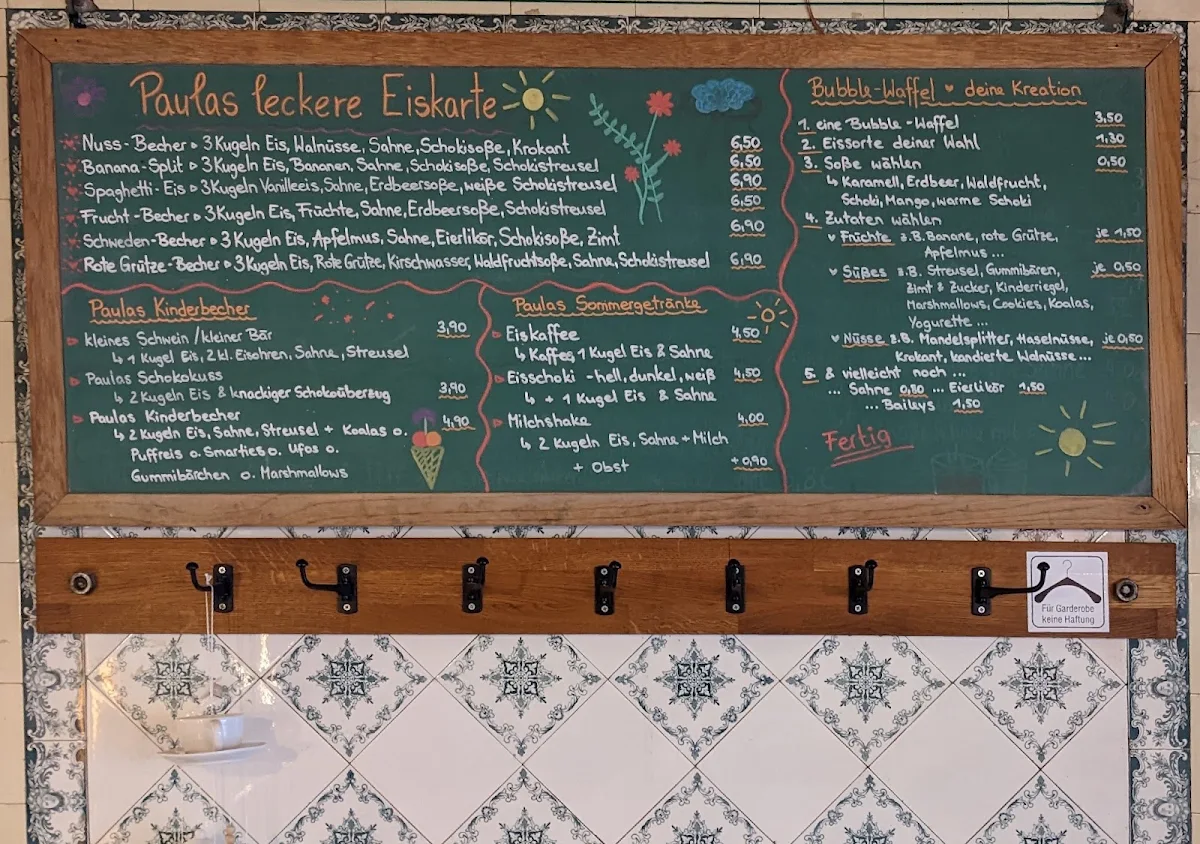 Paulas leckere Eiskarte
Nuss-Becher 3 Kugeln Eis, Walnüsse, Sahne, Schokisoße, Krokant 6,50
Banana-Split 3 Kugeln Eis, Bananen, Sahne, Schokisoße, Schokistreusel 6,50
Spaghetti-Eis 3 Kugeln Vanilleeis, Sahne, Erdbeersoße, weiße Schokistreusel 6,90
Frucht-Becher 3 Kugeln Eis, Früchte, Sahne, Erdbeersoße, Schokistreusel 6,50
Schweden-Becher 3 Kugeln Eis, Apfelmus, Sahne, Eierlikör, Schokisoße, Zimt 6,90
Rote Grütze-Becher 3 Kugeln Eis, Rote Grütze, Kirschwasser, Waldfruchtsoße, Sahne, Schokistreusel 6,90
Paulas Kinderbecher
kleines Schwein / kleiner Bär 3,90
↳ 1 Kugel Eis, 2 kl. Eisohren, Sahne, Streusel
Paulas Schokokuss
↳ 2 Kugeln Eis & knackiger Schokoüberzug 3,90
Paulas Kinderbecher 4,90
↳ 2 Kugeln Eis, Sahne, Streusel + Koalas o.
Puffreis o. Smarties o. Ufos o.
Gummibärchen o. Marshmallows
Paulas Sommergetränke
Eiskaffee 4,50
↳ Kaffee, 1 Kugel Eis & Sahne
Eisschoki - hell, dunkel, weiß 4,50
↳ + 1 Kugel Eis & Sahne
Milchshake 4,00
↳ 2 Kugeln Eis, Sahne + Milch
+ Obst + 0,90
Bubble-Waffel ♥ deine Kreation
1. eine Bubble-Waffel 3,50
2. Eissorte deiner Wahl 1,30
3. Soße wählen 0,50
↳ Karamell, Erdbeer, Waldfrucht,
Schoki, Mango, warme Schoki
4. Zutaten wählen
♥ Früchte z.B. Banane, rote Grütze, je 1,50
Apfelmus ...
♥ Süßes z.B. Streusel, Gummibären, je 0,50
Zimt & Zucker, Kinderriegel,
Marshmallows, Cookies, Koalas,
Yogurette ...
♥ Nüsse z.B. Mandelsplitter, Haselnüsse, je 0,50
Krokant, kandierte Walnüsse ...
5. & vielleicht noch ...
... Sahne 0,80 ... Eierlikör 1,50
... Baileys 1,50
Fertig
Für Garderobe
keine Haftung